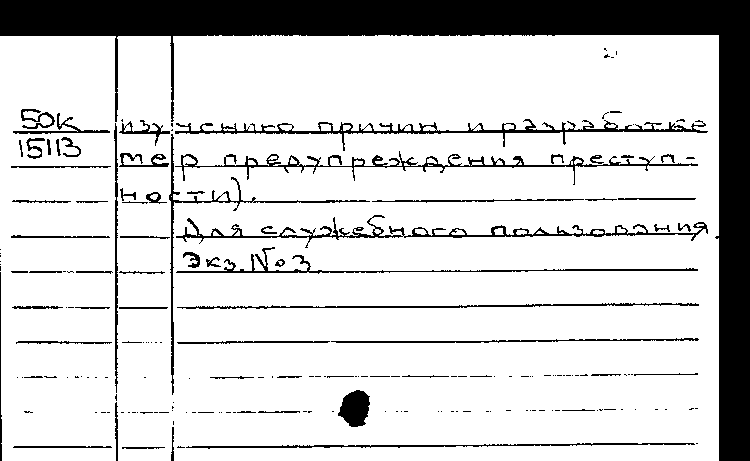 2
50К изучению причин и разработке
15113 мер предупреждения преступ-
ности).
Для служебного пользования.
Экз. № 3